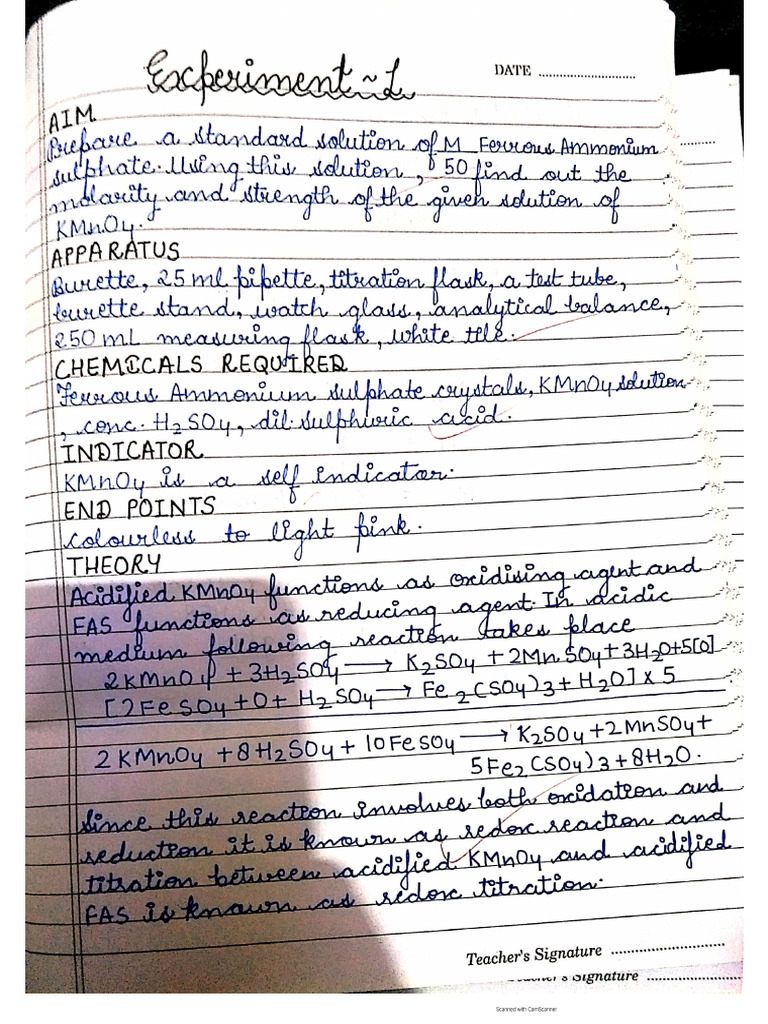 Experiment ~ 1
DATE ............................
AIM
Prepare a standard solution of M Ferrous Ammonium
sulphate. Using this solution, 50 find out the
molarity and strength of the given solution of
KMnO4.
APPARATUS
Burette, 25 ml pipette, titration flask, a test tube,
burette stand, watch glass, analytical balance,
250 mL measuring flask, white tile.
CHEMICALS REQUIRED
Ferrous Ammonium sulphate crystals, KMnO4 solution
, conc. H2SO4, dil. sulphuric acid.
INDICATOR
KMnO4 is a self indicator.
END POINTS
colourless to light pink.
THEORY
Acidified KMnO4 functions as oxidising agent and
FAS functions as reducing agent. In acidic
medium following reaction takes place
2KMnO4 + 3H2SO4 → K2SO4 + 2MnSO4 + 3H2O + 5[O]
[2FeSO4 + O + H2SO4 → Fe2(SO4)3 + H2O] x 5
2KMnO4 + 8H2SO4 + 10FeSO4 → K2SO4 + 2MnSO4 +
5Fe2(SO4)3 + 8H2O.
Since this reaction involves both oxidation and
reduction it is known as redox reaction and
titration between acidified KMnO4 and acidified
FAS is known as redox titration.
Teacher's Signature ............................
Signature ............................
Scanned with CamScanner